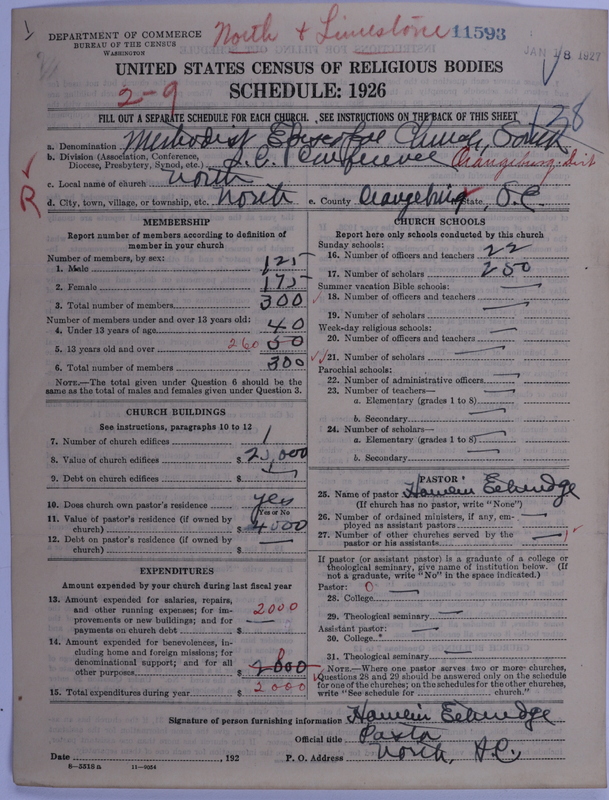 1
North & Limestone 11593
DEPARTMENT OF COMMERCE
BUREAU OF THE CENSUS
WASHINGTON
JAN 18 1927
UNITED STATES CENSUS OF RELIGIOUS BODIES
SCHEDULE: 1926
2-9
FILL OUT A SEPARATE SCHEDULE FOR EACH CHURCH. SEE INSTRUCTIONS ON THE BACK OF THIS SHEET
128
a. Denomination Methodist Episcopal Church, South
b. Division (Association, Conference,
Diocese, Presbytery, Synod, etc.) S.C. Conference Orangeburg Dist
R
c. Local name of church North
d. City, town, village, or township, etc. North e. County Orangeburg State, S.C.
MEMBERSHIP
Report number of members according to definition of
member in your church
Number of members, by sex:
1. Male 125
2. Female 175
3. Total number of members 300
Number of members under and over 13 years old:
4. Under 13 years of age 40
5. 13 years old and over 260 50
6. Total number of members 300
NOTE.—The total given under Question 6 should be the
same as the total of males and females given under Question 3.
CHURCH BUILDINGS
See instructions, paragraphs 10 to 12
7. Number of church edifices 1
8. Value of church edifices $ 25,000
9. Debt on church edifices $
10. Does church own pastor's residence yes
Yes or No
11. Value of pastor's residence (if owned by
church) $ 4000
12. Debt on pastor's residence (if owned by
church) $
EXPENDITURES
Amount expended by your church during last fiscal year
13. Amount expended for salaries, repairs,
and other running expenses; for im-
provements or new buildings; and for
payments on church debt $ 2000
14. Amount expended for benevolences, in-
cluding home and foreign missions; for
denominational support; and for all
other purposes $ 2000
15. Total expenditures during year $ 2000
CHURCH SCHOOLS
Report here only schools conducted by this church
Sunday schools:
16. Number of officers and teachers 22
17. Number of scholars 250
Summer vacation Bible schools:
18. Number of officers and teachers
19. Number of scholars
Week-day religious schools:
20. Number of officers and teachers
21. Number of scholars
Parochial schools:
22. Number of administrative officers
23. Number of teachers—
a. Elementary (grades 1 to 8)
b. Secondary
24. Number of scholars—
a. Elementary (grades 1 to 8)
b. Secondary
PASTOR
25. Name of pastor
(If church has no pastor, write "None")
26. Number of ordained ministers, if any, em-
ployed as assistant pastors
27. Number of other churches served by the
pastor or his assistants 1
If pastor (or assistant pastor) is a graduate of a college or
theological seminary, give name of institution below. (If
not a graduate, write "No" in the space indicated.)
Pastor: 0
28. College
29. Theological seminary
Assistant pastor:
30. College
31. Theological seminary
NOTE.—Where one pastor serves two or more churches,
Questions 28 and 29 should be answered only on the schedule
for one of the churches; on the schedules for the other churches,
write "See schedule for church."
Signature of person furnishing information
Official title Pastor
Date , 192 P. O. Address North, S.C.
8-5518a 11-9034